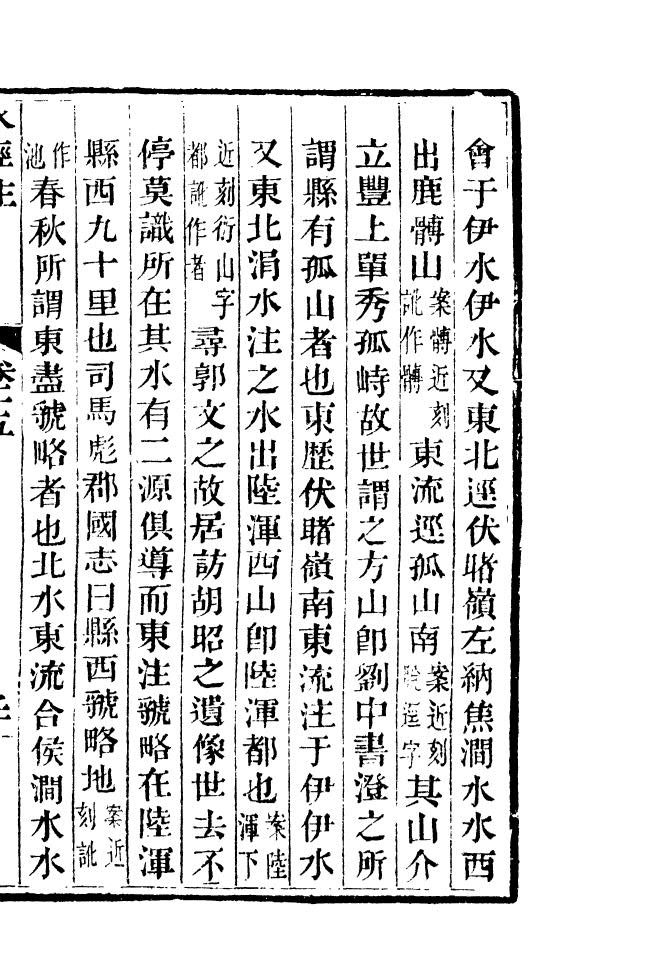 會于伊水伊水又東北逕伏睹嶺左納焦澗水水西
出鹿髆山案髆近刻訛作髈東流逕孤山南案近刻脫逕字其山介
立豐上單秀孤峙故世謂之方山卽劉中書澄之所
謂縣有孤山者也東歷伏睹嶺南東流注于伊伊水
又東北涓水注之水出陸渾西山卽陸渾都也案陸渾下
近刻衍山字都訛作者尋郭文之故居訪胡昭之遺像世去不
停莫識所在其水有二源俱導而東注虢略在陸渾
縣西九十里也司馬彪郡國志曰縣西虢略地案近刻訛
作池春秋所謂東盡虢略者也北水東流合侯澗水水
水經注 卷十五